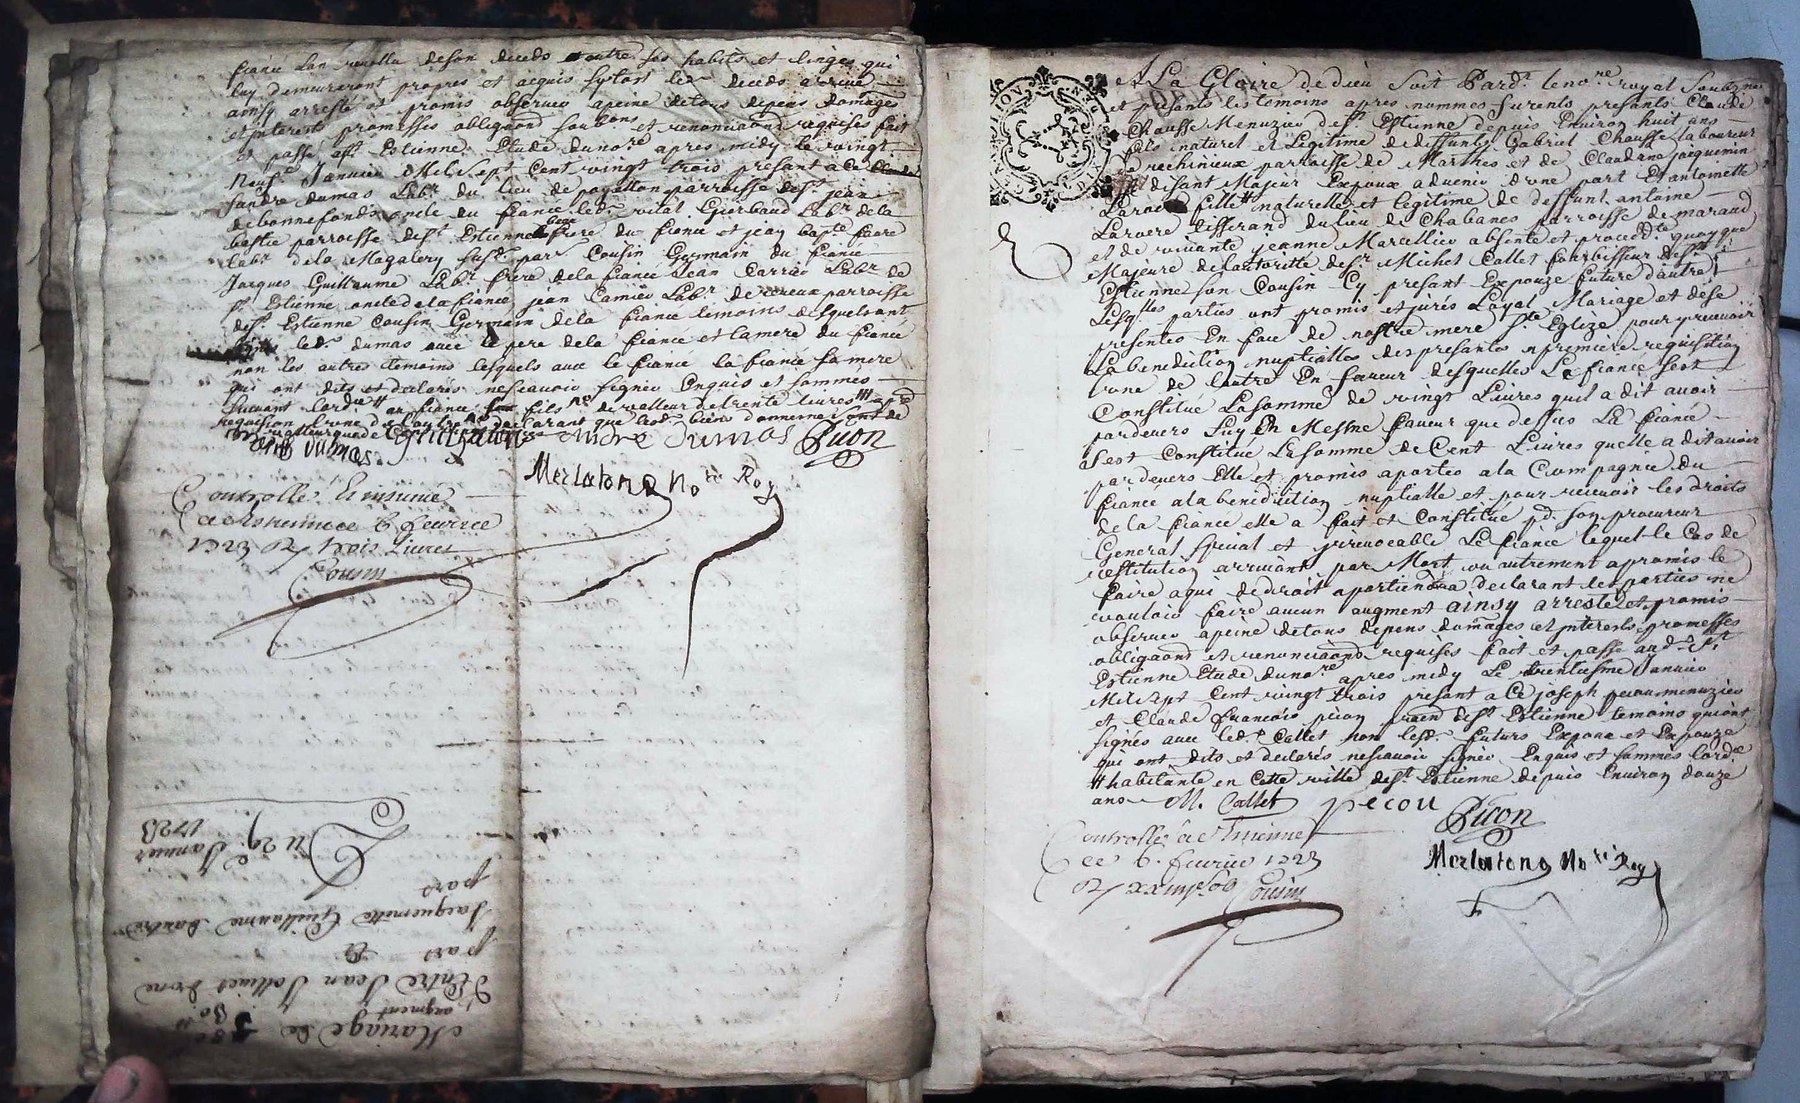 fiancé lan revollu deson deceds outre ses habits et linges qui
luy demeureront propres et acquis sytost led. deceds arrivé
ainsy arresté et promis observer apeine detous depens domages
et interests promesses obligaons soubons et renonciaons requises fait
et passé aSt Estienne Etude dunore apres midy le vingt
neufe Janvier Mil sept Cent vingt trois presant a ce
andré dumas Labr du lieu de parroisse de St jean
de bonnefonds oncle du fiance led. vital Lab.r de la
bastie parroisse de St Estienne beau frere du fiance et jean bap.te faure
labr. dela susd. parr. Cousin Germain du fiancé
Jacques Guillaume Labr. frere dela fiance Jean Carrier Labr. de
St Estienne oncle dela fiance, jean Camier Labr. de parroisse
de St Estienne Cousin Germain dela fiance temoins desquels ont
signé led. dumas avec le pere dela fiance et la mere du fiancé
non les autres temoins lesquels avec le fiancé la fiance sa mere
qui ont dits et declarés nescavoir signer Enquis et sommes
suivant lord.ce au fiancé fils de valleur de trente livres
requision lune de lautre declarant que lesd. biens donnés
dumas. André Dumas Picon
Merlaton No re Roy
Controllé & insinué
a St Estienne ce 6 fevrier
1723 R. trois Livres
Cousin
Du 29e Janvier
1723
Mariage de
d'augment 30 ll
Entre Jean Jollivet dune
part &
Jacquemette Guillaume dautre
part
A La Gloire de dieu soit Pard.t le nore royal soubzné
et presants les temoins apres nommes furents presents Claude
Chausse Menuzier de St Estienne depuis Environ huit ans
fils naturel et Legitime de deffunts Gabriel Chausse laboureur
de parroisse de Marlhes et de Claudina jacquemin
se disant Majeur Expoux advenir dune part Et antoinette
Laroere fille naturelle et legitime de deffunt antoine
Laroere tisserand du lieu de Chabanes parroisse de marand
et de vivante jeanne Marcellier absente et proced.te quoyque
Majeure de lautoritté de Sr Michel Callet fourbisseur de St
Estienne son Cousin Cy presant Expouze future d'autre
Lesq.lles parties ont promis et jurés Loyal Mariage et dese
presenter En face de nostre mere Ste Eglize pour y recevoir
La benediction nuptialle des presantes a premiere requisition
lune de lautre En faveur desquelles Le fiancé sest
Constitué Lasomme de vingt Livres quil a dit avoir
pardevers Luy En Mesme faveur que dessus La fiance
Sest Constitué Lasomme de Cent Livres quelle a dit avoir
par devers Elle et promis aporter a la Compagnie du
fiance a la benediction nuptialle et pour recevoir les droits
de la fiance elle a fait et Constitué pd. son procureur
General special et irrevocable Le fiance lequel le Cas de
restitution arrivant par Mort ou autrement apromis le
faire a qui de droit apartiendra declarant les parties ne
vouloir faire aucun augment ainsy arresté et promis
observer apeine detous depens domages et interests promesses
obligaons et renonciaons requises fait et passé aud. St
Estienne Etude dunore apres midy Le trentiesme janvier
Mil sept Cent vingt trois presant a Ce joseph pecou menuzier
et Claude françois picon praen de St Estienne temoins qui ont
signés avec led. Sr Callet non lesd. futurs Expoux et Expouze
qui ont dits et declarés nescavoir signer Enquis et sommés lord.ce
# habitante en Cette ville de St Estienne depuis Environ douze
ans M. Callet pecou Picon
Controllé a St Estienne
ce 6. fevrier 1723
Cousin
Merlaton No re Roy